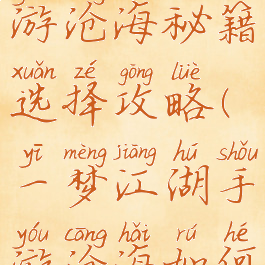 游沧海秘籍
xuǎn zé gōng lüè
选择攻略(
yī mèng jiāng hú shǒu
一梦江湖手
yóu cāng hǎi rú hé
游沧海如何